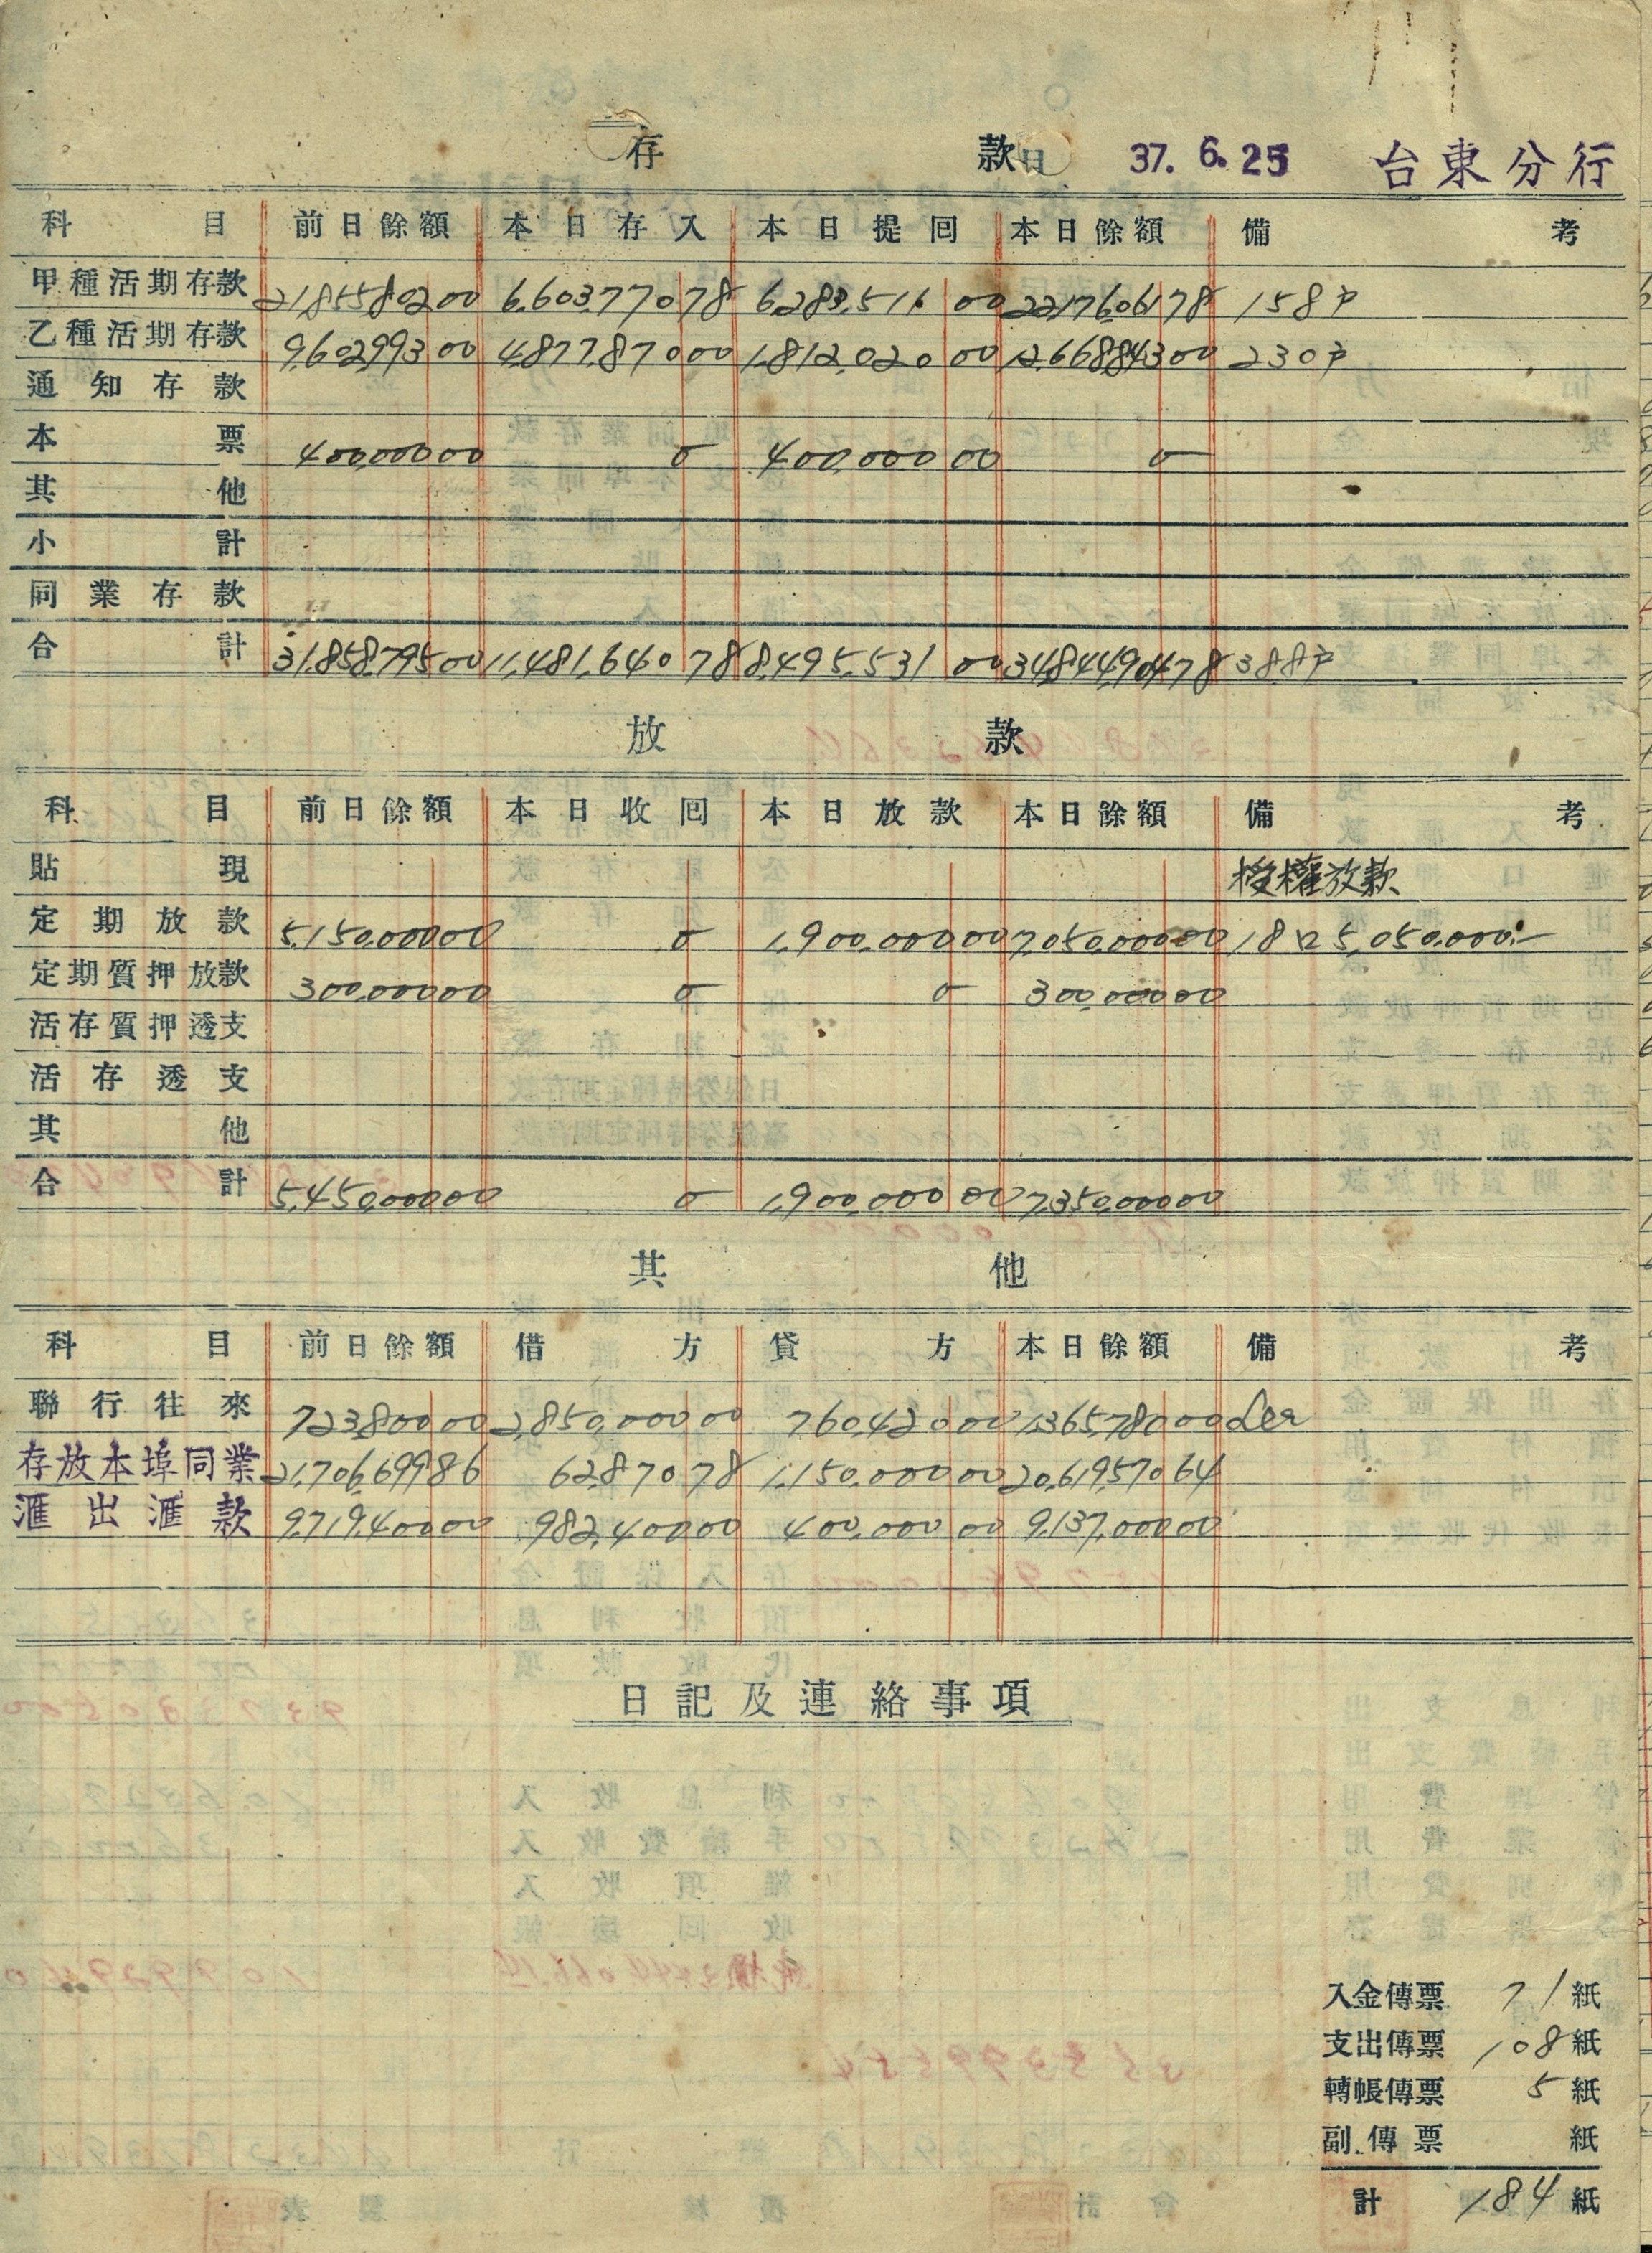 存款日 37. 6. 25 台東分行
科目 前日餘額 本日存入 本日提回 本日餘額 備考
甲種活期存款 21,855,802 00 6,603,770 78 6,283,511 00 22,176,061 78 158戶
乙種活期存款 9,602,993 00 4,877,870 00 1,812,020 00 12,668,843 00 230戶
通知存款
本票 400,000 00 0 400,000 00 0
其他
小計
同業存款
合計 31,858,795 00 11,481,640 78 8,495,531 00 34,844,904 78 388戶
放款
科目 前日餘額 本日收回 本日放款 本日餘額 備考
貼現 授權放款
定期放款 5,150,000 00 0 1,900,000 00 7,050,000 00 18口 5,050,000.-
定期質押放款 300,000 00 0 0 300,000 00
活存質押透支
活存透支
其他
合計 5,450,000 00 0 1,900,000 00 7,350,000 00
其他
科目 前日餘額 借方 貸方 本日餘額 備考
聯行往來 723,800 00 2,850,000 00 760,420 00 1,365,780 00 der
存放本埠同業 21,706,699 86 62,870 78 1,150,000 00 20,619,570 64
滙出滙款 9,719,400 00 982,400 00 400,000 00 9,137,000 00
日記及連絡事項
入金傳票 71 紙
支出傳票 108 紙
轉帳傳票 5 紙
副傳票 紙
計 184 紙